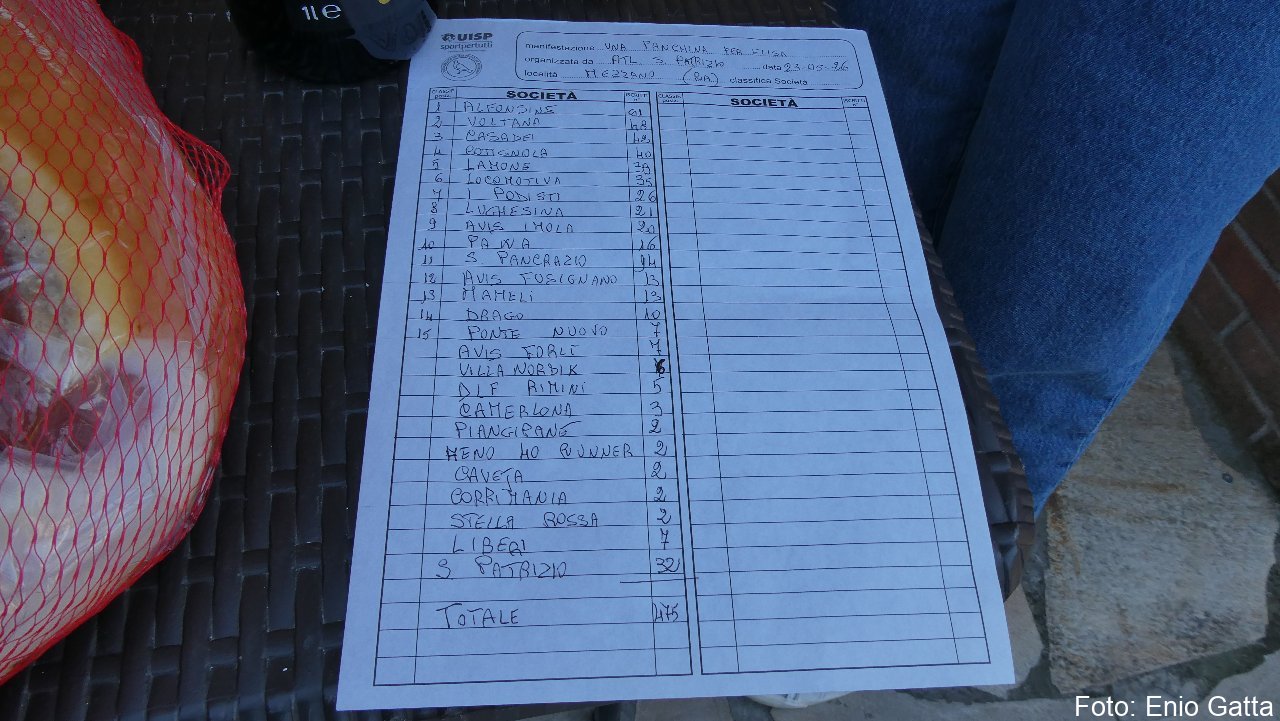 1l e
UISP
sportpertutti
manifestazione UNA PANCHINA PER ELISA
organizzata da ATL. S. PATRIZIO data 23-05-26
località MEZZANO (RA) classifica Società
SOCIETÀ SOCIETÀ
1 ALFONSINE 61
2 VOLTANA 48
3 CASADEI 43
4 COTIGNOLA 40
5 LAMONE
6 LOCOMOTIVA 35
7 I PODISTI 26
8 LUGHESINA 21
9 AVIS IMOLA 20
10 PAVA 16
11 S PANCRAZIO 14
12 AVIS FUSIGNANO 13
13 MAMELI 13
14 DRAGO 10
15 PONTE NUOVO 7
AVIS FORLÌ 7
VILLA NORDIK 6
DLF RIMINI 5
CAMERLONA 3
PIANGIPANE 2
MENO 40 RUNNER 2
CAVEJA 2
CORRIMANIA 2
STELLA ROSSA 2
LIBERI 7
S. PATRIZIO 32
TOTALE 475
Foto: Enio Gatta